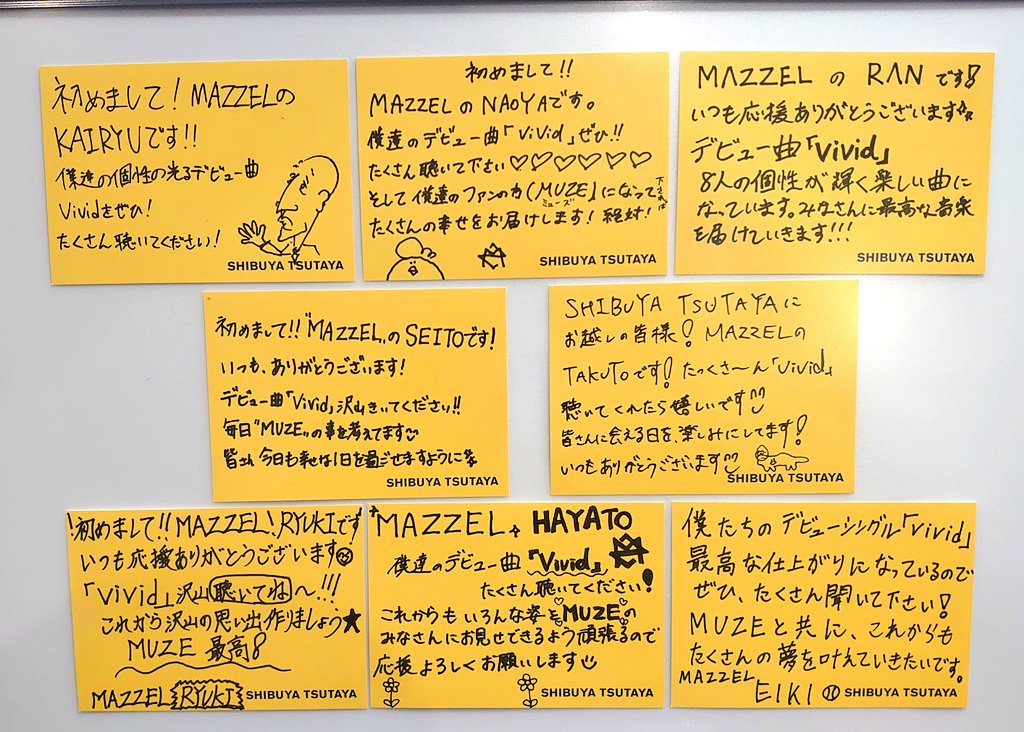 初めまして!MAZZELの
KAIRYUです!!
僕達の個性の光るデビュー曲
Vividをぜひ!
たくさん聴いてください!
SHIBUYA TSUTAYA
初めまして!!
MAZZELのNAOYAです。
僕達のデビュー曲「ViVid」ぜひ!!
たくさん聴いて下さい♡♡♡♡♡♡
そして僕達のファンの方(MUZE)になって下されば
ミューズ
たくさんの幸せをお届けします!絶対!
SHIBUYA TSUTAYA
MAZZELのRANです!
いつも応援ありがとうございます
デビュー曲「Vivid」
8人の個性が輝く楽しい曲に
なっています。みなさんに最高な音楽
を届けていきます!!!
SHIBUYA TSUTAYA
初めまして!!"MAZZEL"のSEITOです!
いつも、ありがとうございます!
デビュー曲「Vivid」沢山きいてください!!
毎日"MUZE"の事を考えてます
皆さん今日も幸せな1日を過ごせますように
SHIBUYA TSUTAYA
SHIBUYA TSUTAYAに
お越しの皆様!MAZZELの
TAKUTOです!たっくさ〜ん「Vivid」
聴いてくれたら嬉しいです
皆さんに会える日を、楽しみにしてます!
いつもありがとうございます
SHIBUYA TSUTAYA
!初めまして!!MAZZEL!RYUKIです!
いつも応援ありがとうございます
「vivid」沢山聴いてね〜!!!
これから沢山の思い出作りましょう★
MUZE 最高!
MAZZEL RYUKI SHIBUYA TSUTAYA
MAZZEL HAYATO
僕達のデビュー曲「Vivid」
たくさん聴いてください!
これからもいろんな姿をMUZEの
みなさんにお見せできるよう頑張るので
応援よろしくお願いします
SHIBUYA TSUTAYA
僕たちのデビューシングル「vivid」
最高な仕上がりになっているので
ぜひ、たくさん聞いて下さい!
MUZEと共に、これからも
たくさんの夢を叶えていきたいです。
MAZZEL
EIKI SHIBUYA TSUTAYA